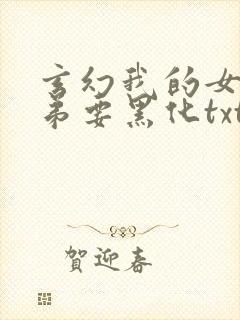 玄幻我的女
弟要黑化txt
賀迎春